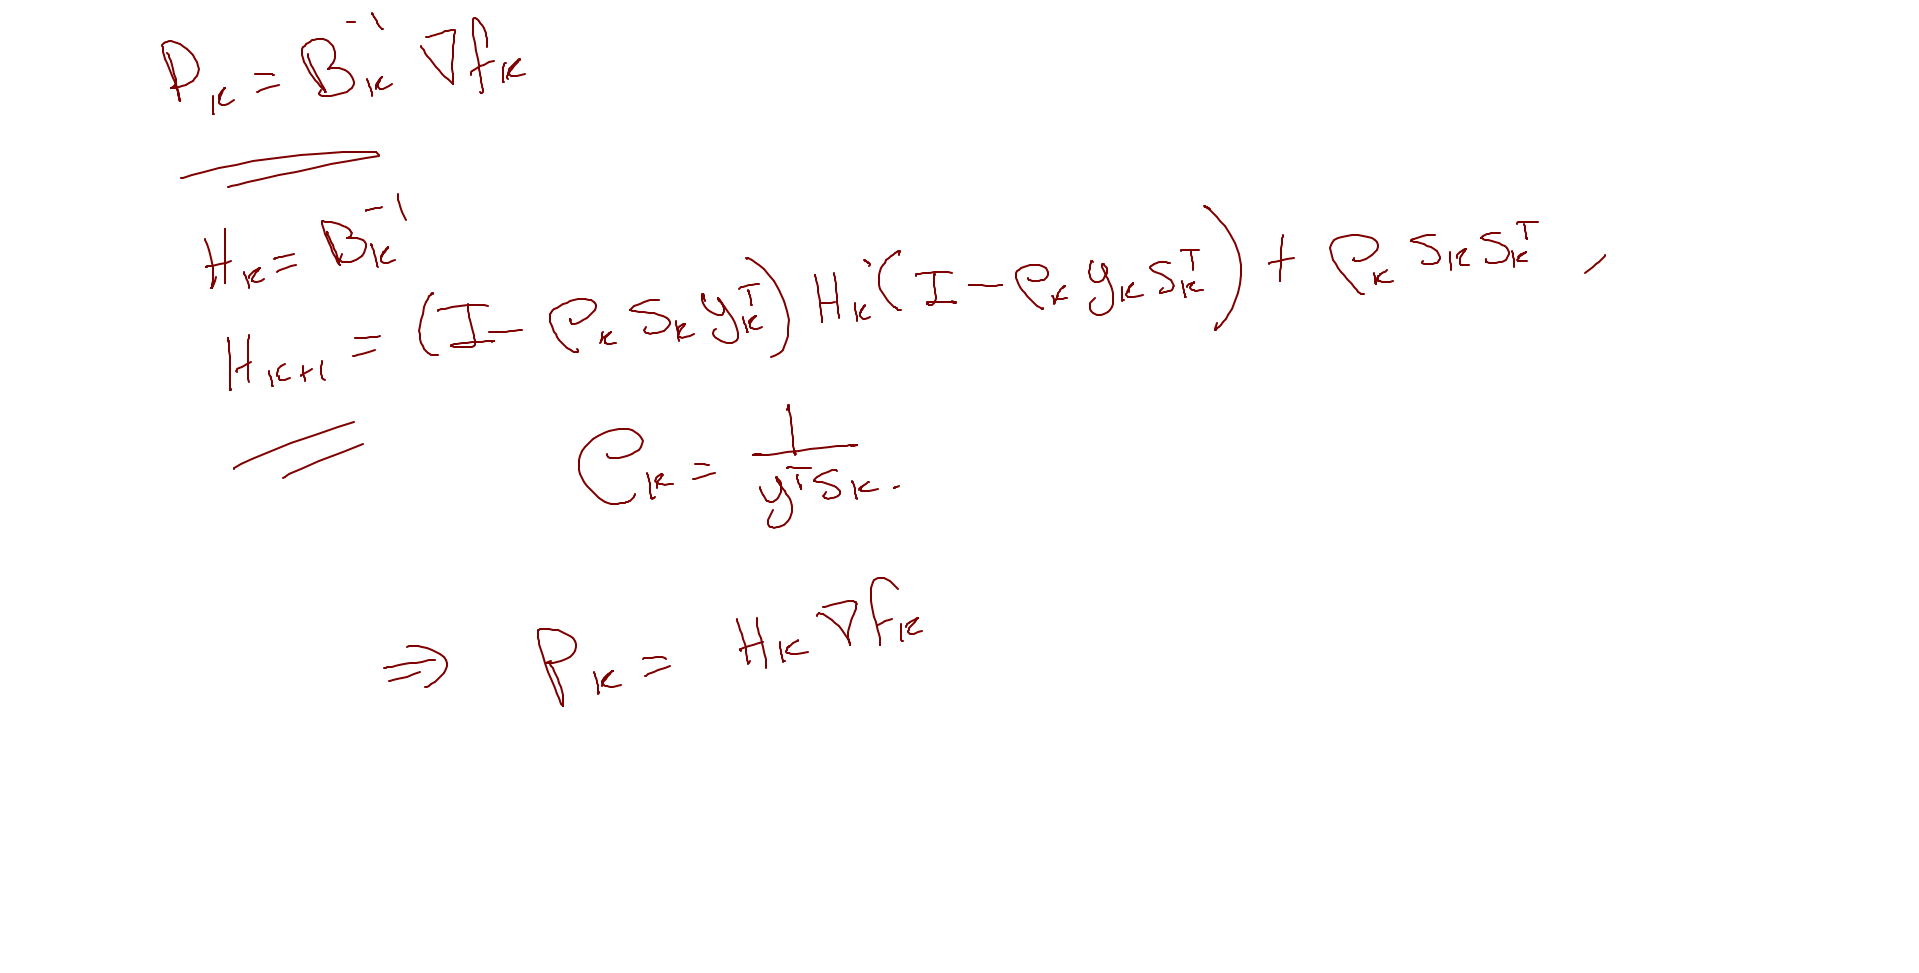 P_k = B_k^{-1} ∇f_k
H_k = B_k^{-1}
H_{k+1} = (I - ρ_k s_k y_k^T) H_k (I - ρ_k y_k s_k^T) + ρ_k s_k s_k^T ,
ρ_k = 1 / (y^T s_k) .
⇒ P_k = H_k ∇f_k